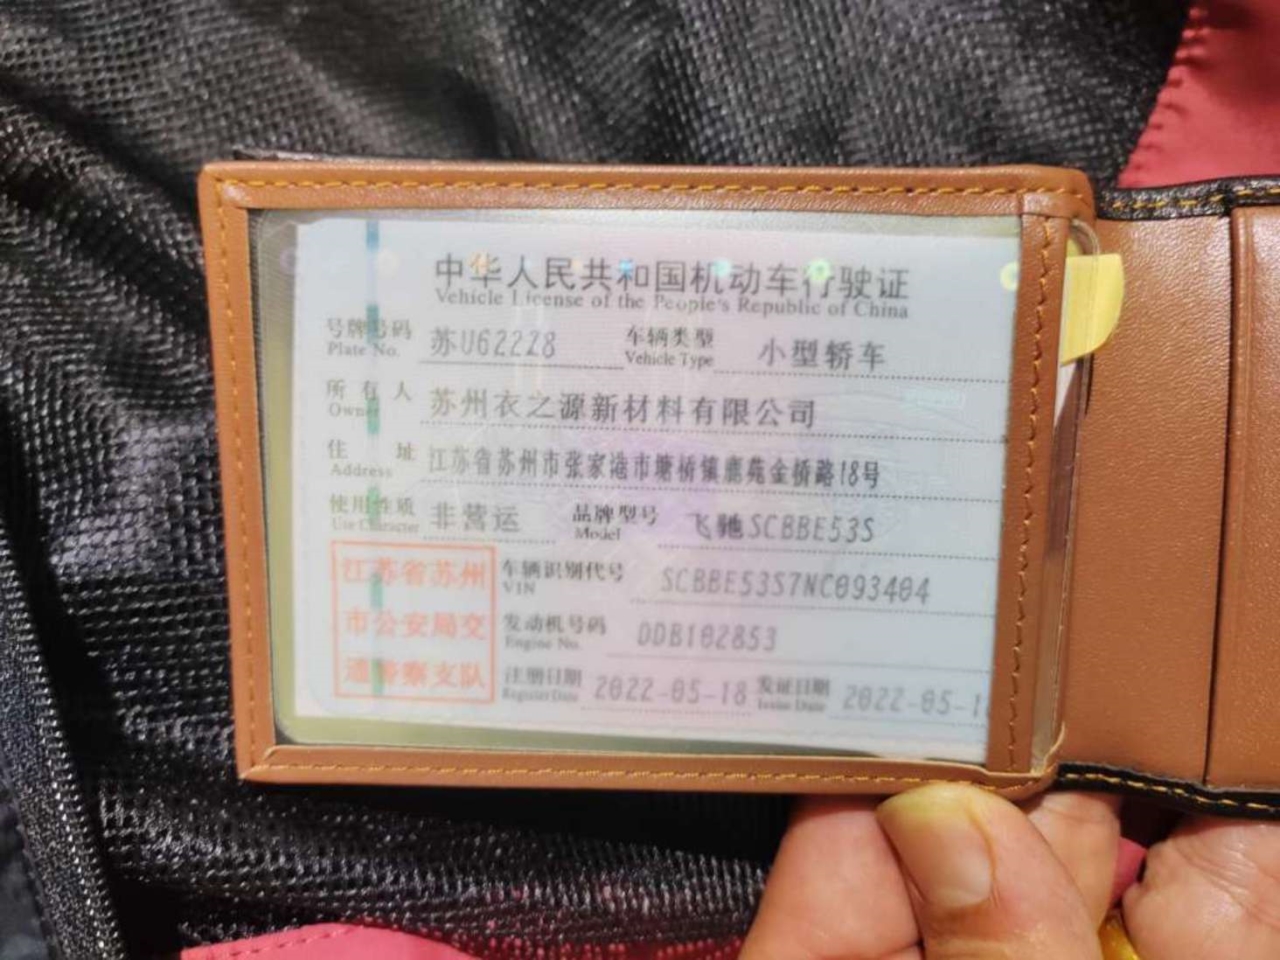 中华人民共和国机动车行驶证
Vehicle License of the People's Republic of China
号牌号码 苏U622Z8 车辆类型 小型轿车
Plate No. Vehicle Type
所有人 苏州衣之源新材料有限公司
Owner
住址 江苏省苏州市张家港市塘桥镇鹿苑金桥路18号
Address
使用性质 非营运 品牌型号 飞驰SCBBE53S
Use Character Model
江苏省苏州 车辆识别代号 SCBBE53S7NC093404
VIN
市公安局交 发动机号码 DDB102853
Engine No.
通警察支队 注册日期 2022-05-18 发证日期 2022-05-1
Register Date Issue Date